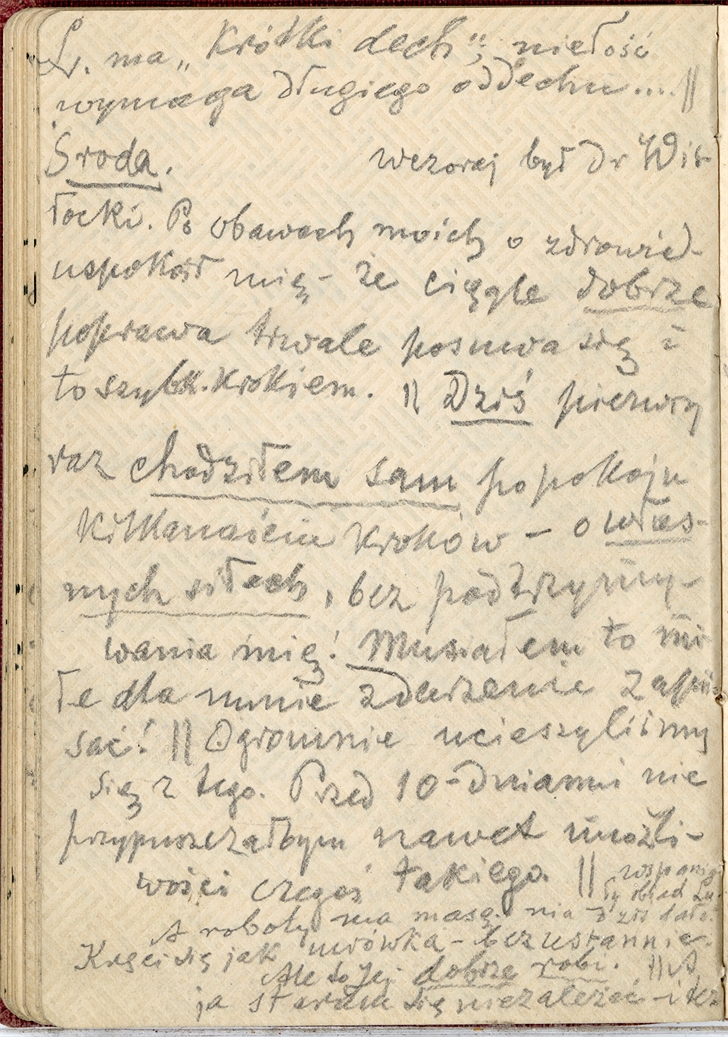 Lr. ma „Krótki dech"; miłość
wymaga długiego oddechu... ||
Środa. wczoraj był Dr Wis-
łocki. Po obawach moich o zdrowie-
uspokoił mię - że ciągle dobrze
poprawa trwale posuwa się i
to szybk. krokiem. || Dziś pierwszy
raz chodziłem sam po pokoju
kilkanaście kroków - o włas-
nych siłach, bez podtrzymy-
wania mię! Musiałem to mi-
łe dla mnie zdarzenie zapi-
sać! || Ogromnie ucieszyliśmy
się z tego. Przed 10-dniami nie
przypuszczałbym nawet możli-
wości czegoś takiego. || wspania-
ły obiad
A roboty ma masę. nia dziś dała.
Kręci się jak mrówka - bezustannie.
Ale to Jej dobrze robi. || A
ja staram się niezależeć - i też